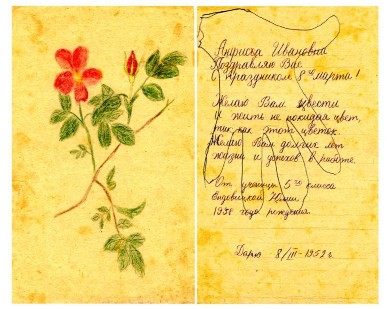 Анфиса Ивановна
Поздравляю Вас
с праздником 8го марта!
Желаю Вам цвести
и жить не покидая цвет,
так как этот цветок.
Желаю Вам долгих лет
жизни и успехов в работе.
От ученицы 5го класса
Нины
1938 года рождения.
Дарю 8/III-1952 г.